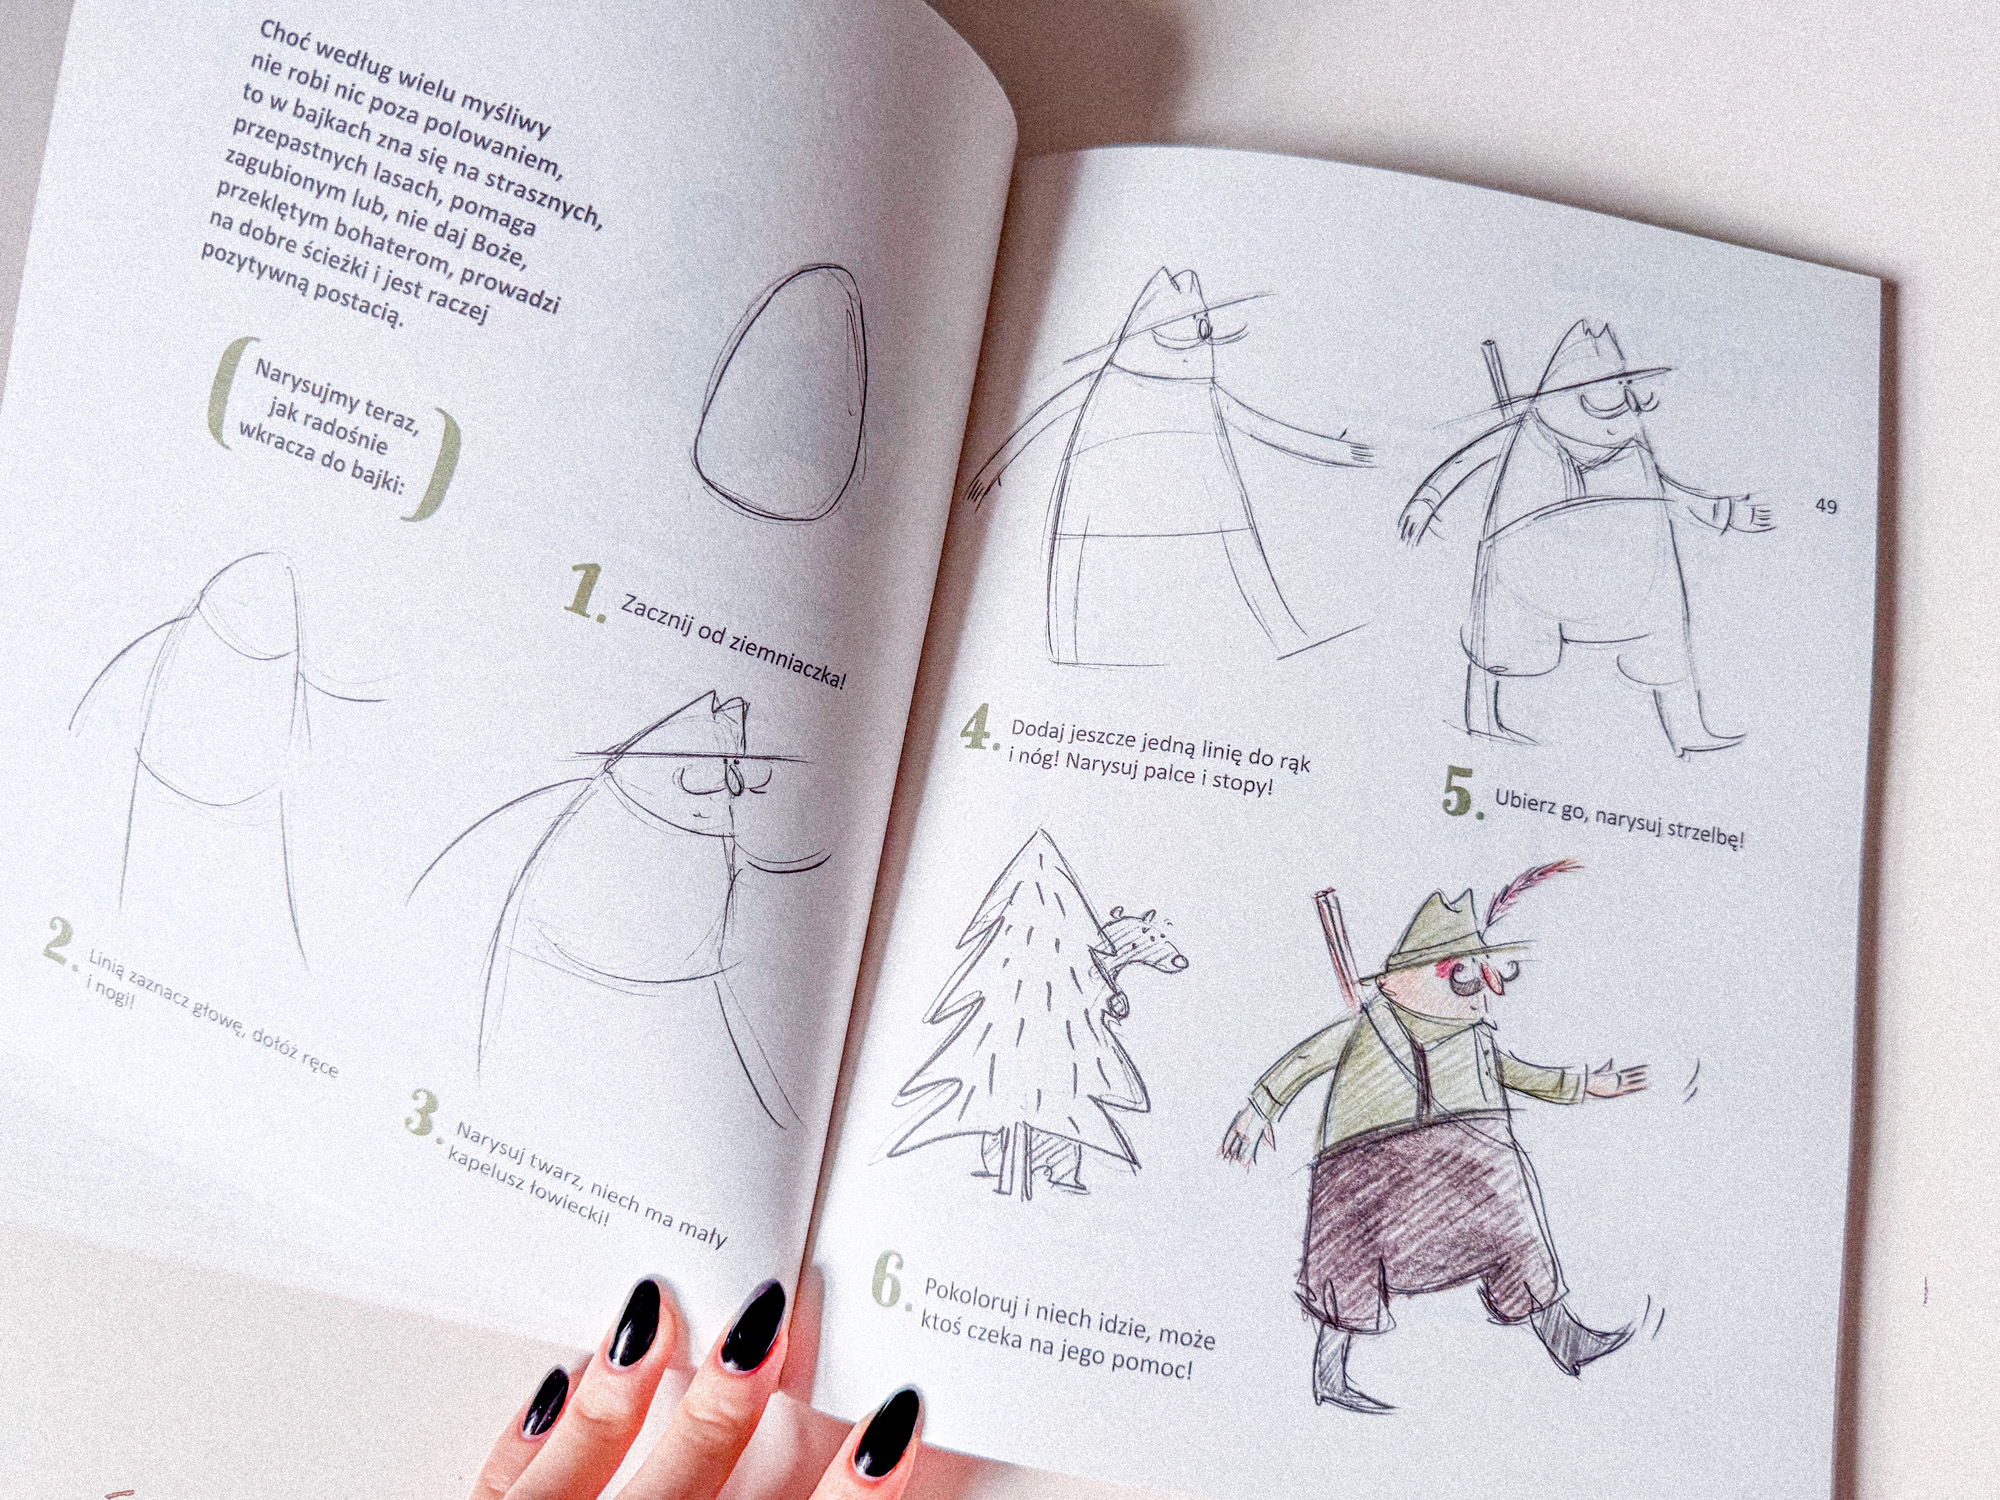 Choć według wielu myśliwy
nie robi nic poza polowaniem,
to w bajkach zna się na strasznych,
przepastnych lasach, pomaga
zagubionym lub, nie daj Boże,
przeklętym bohaterom, prowadzi
na dobre ścieżki i jest raczej
pozytywną postacią.
Narysujmy teraz,
jak radośnie
wkracza do bajki:
1. Zacznij od ziemniaczka!
2. Linią zaznacz głowę, dołóż ręce
i nogi!
3. Narysuj twarz, niech ma mały
kapelusz łowiecki!
49
4. Dodaj jeszcze jedną linię do rąk
i nóg! Narysuj palce i stopy!
5. Ubierz go, narysuj strzelbę!
6. Pokoloruj i niech idzie, może
ktoś czeka na jego pomoc!